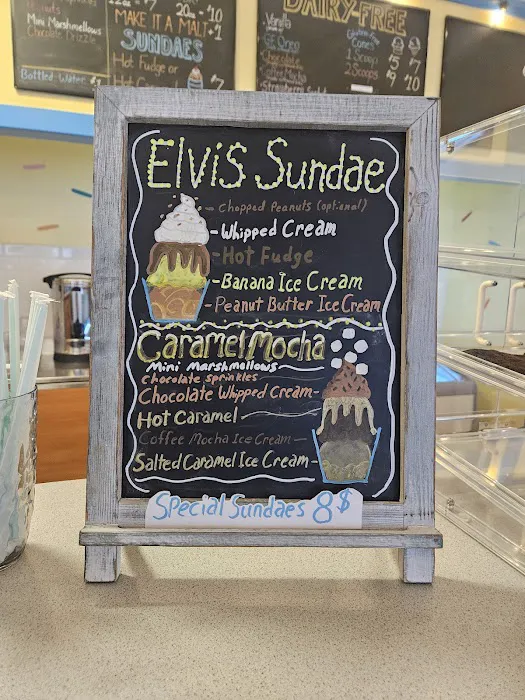 Mini Marshmallows
Chocolate Drizzle
Bottled Water
20oz - $10
MAKE IT A MALT - $1
SUNDAES
Hot Fudge or
DAIRY-FREE
Vanilla
Chocolate
1 Scoop
2 Scoops
Elvis Sundae
- Chopped Peanuts (optional)
- Whipped Cream
- Hot Fudge
- Banana Ice Cream
- Peanut Butter Ice Cream
Caramel Mocha
Mini Marshmallows
Chocolate sprinkles
Chocolate Whipped Cream -
Hot Caramel
Coffee Mocha Ice Cream -
Salted Caramel Ice Cream -
Special Sundaes 8$